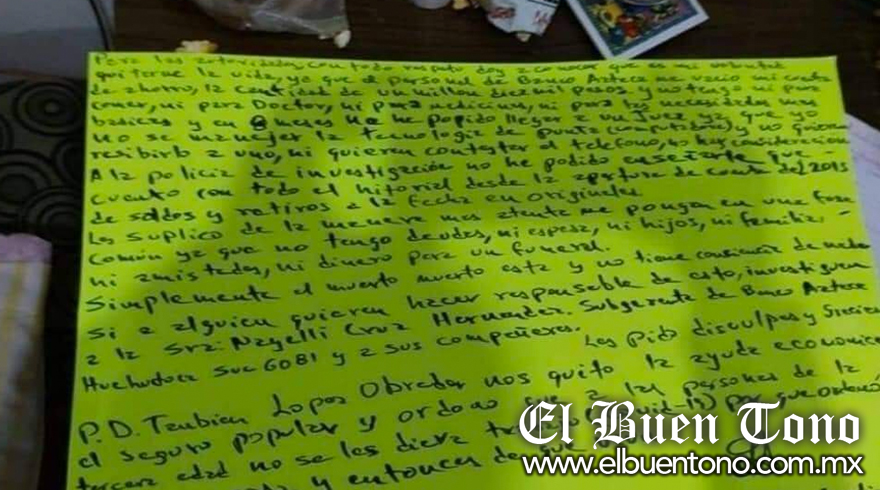 Para las autoridades, con todo respeto, doy a conocer que es mi voluntad
quitarme la vida, ya que el personal de Banco Azteca me vacio mi cuenta
de ahorro, la cantidad de un millon diez mil pesos y no tengo ni para
comer, ni para Doctor, ni para medicinas, ni para las necesidades mas
basicas y en 8 meses no he podido llegar a un Juez, ya que yo
no se manejar la tecnologia de punta (computadora) y no quieren
resibirlo a uno, ni quieren contestar el telefono, no hay consideracion
A la policia de investigación no he podido enseñarle que
cuento con todo el hitorial desde la apertura de cuenta del 2015
de saldos y retiros a la fecha en originales.
Les suplico de la manera mas atenta me pongan en una fosa
común ya que no tengo deudos, ni esposa, ni hijos, ni familia,
ni amistades, ni dinero para un funeral.
Simplemente el muerto muerto esta y no tiene de nada
si a alguien quieren hacer responsable de esto, investiguen
a la Srta: Nayelli Cruz Hernandez. Subgerente de Banco Azteca
Huehuetoca Suc 6081 y a sus compañeros.
Les Pido disculpas y Gracias
P.D. Tanbien Lopez Obrador nos quito la ayuda economica
el seguro popular y ordeno que a las personas de la
tercera edad no se les diera (Covid-19) porque
y entonces de que
El Buen Tono
www.elbuentono.com.mx